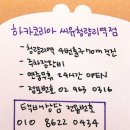 하카코리아 써월청량리역점
- 청량리역 4번출구 70m 직진
- 주차장완비
- 연중무휴 24시간 OPEN
- 점포번호 02 963 0316
택배상담 전화번호
010 8622 0434